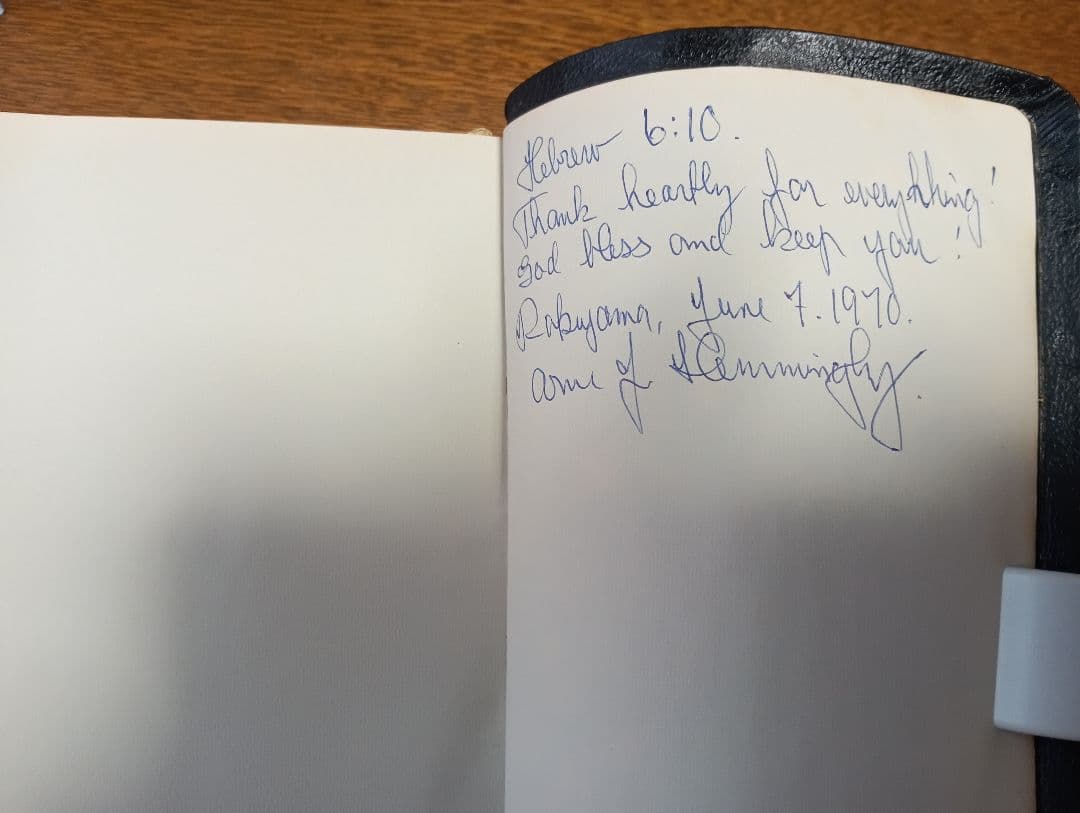 Hebrew 6:10.
Thank heartly for everything!
God bless and keep you!
June 7. 1970.